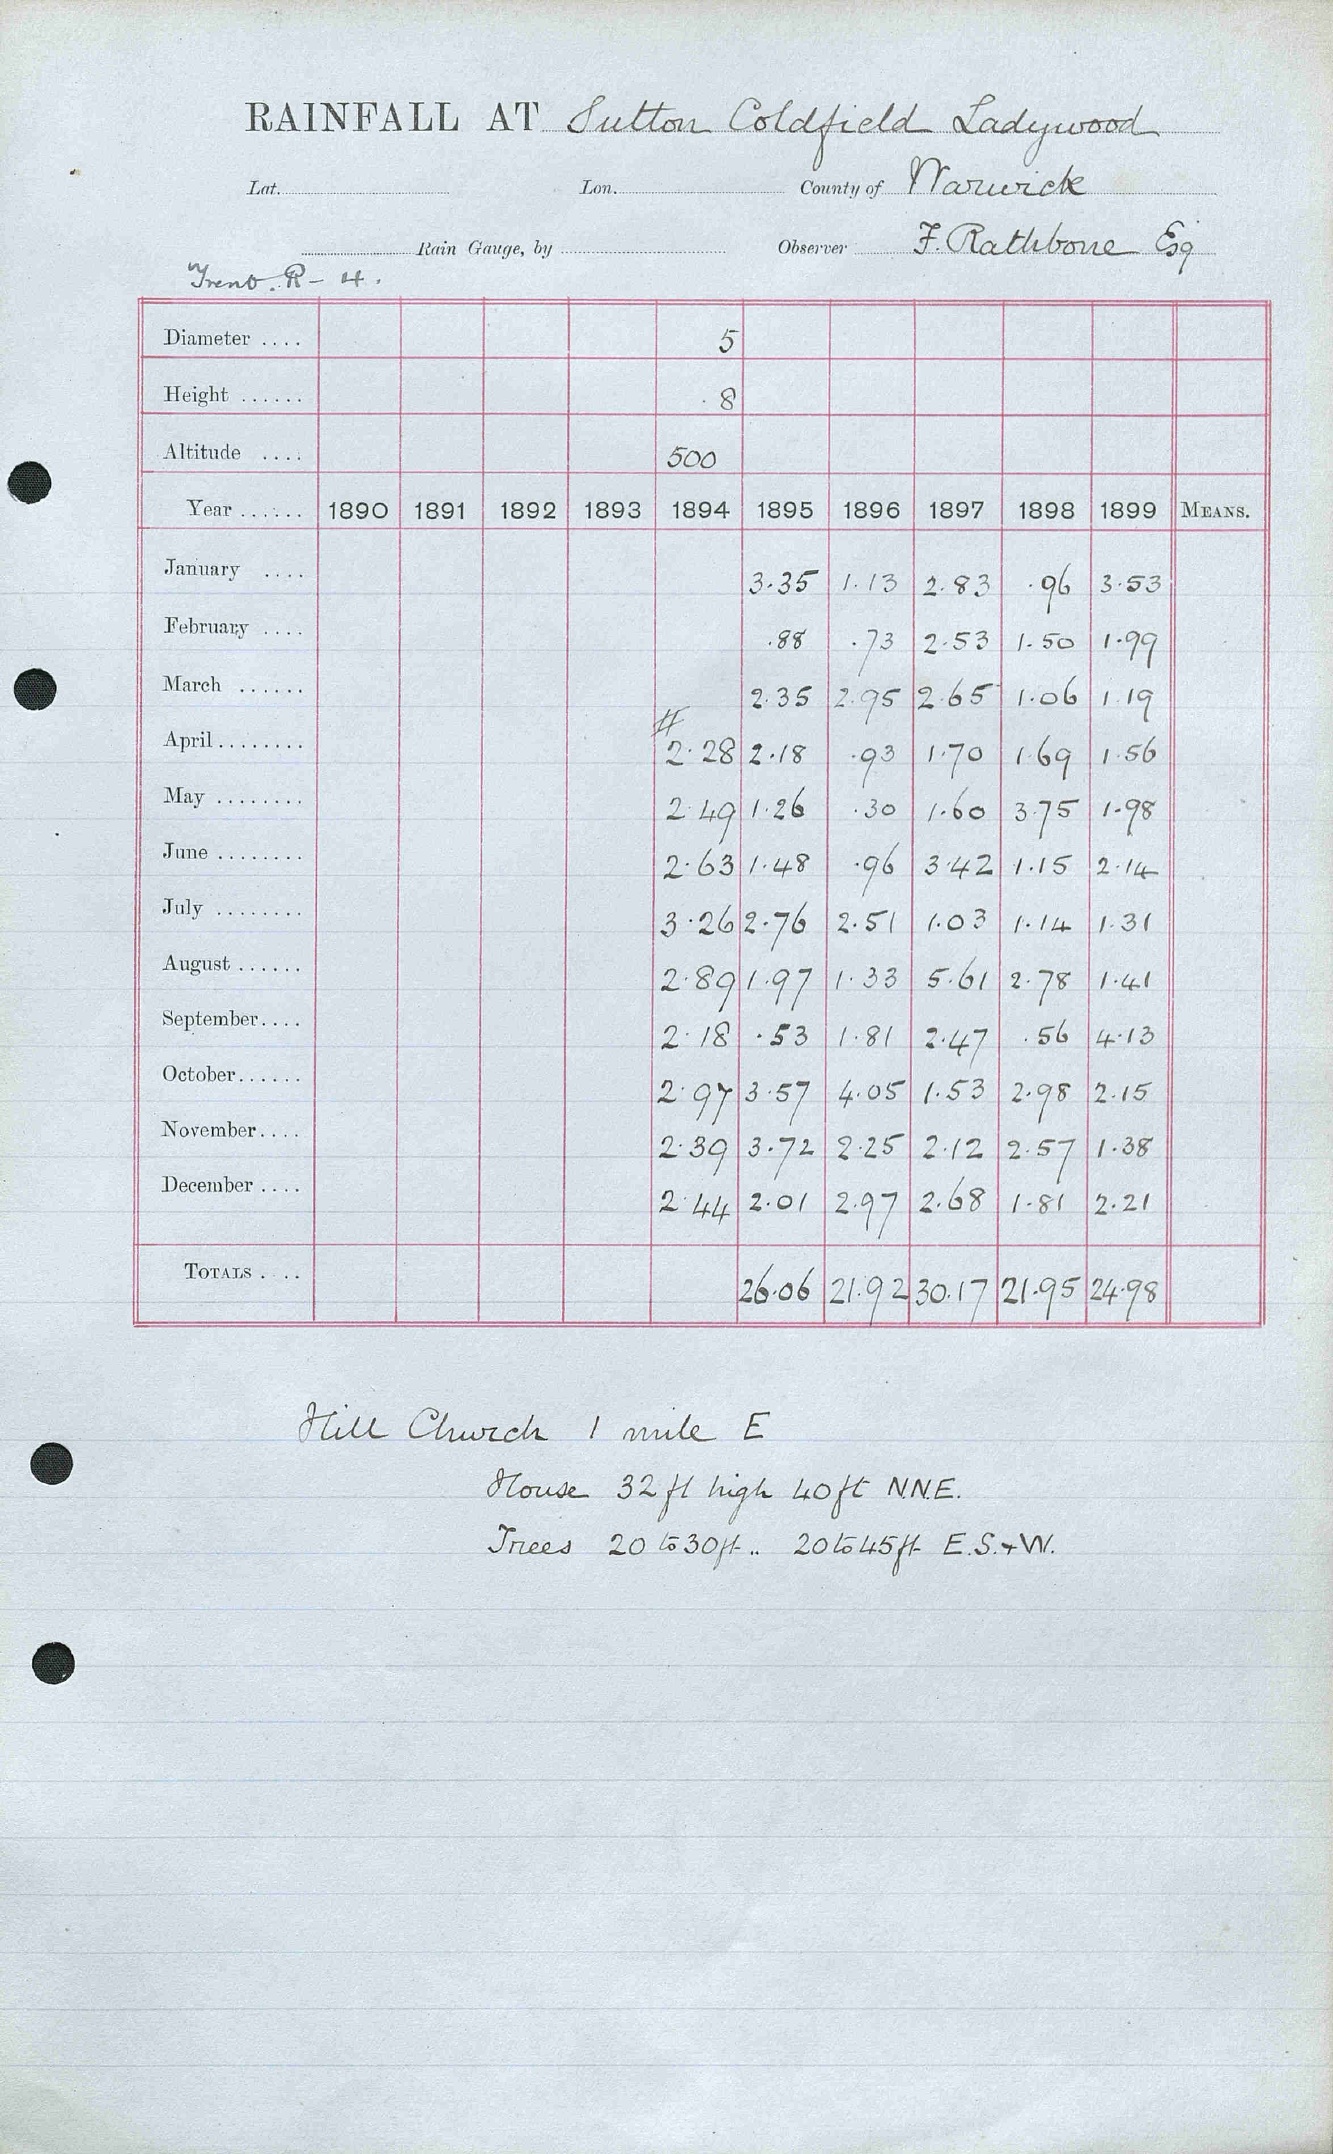 RAINFALL AT Sutton Coldfield Ladywood
Lat. Lon. County of Warwick
Rain Gauge, by Observer F. Rathbone Esq
Trent. R - 4.
Diameter .... 5
Height ...... .8
Altitude .... 500
Year ...... 1890 1891 1892 1893 1894 1895 1896 1897 1898 1899 MEANS.
January .... 3.35 1.13 2.83 .96 3.53
February .... .88 .73 2.53 1.50 1.99
March ...... 2.35 2.95 2.65 1.06 1.19
#
April ........ 2.28 2.18 .93 1.70 1.69 1.56
May ........ 2.49 1.26 .30 1.60 3.75 1.98
June ........ 2.63 1.48 .96 3.42 1.15 2.14
July ........ 3.26 2.76 2.51 1.03 1.14 1.31
August ...... 2.89 1.97 1.33 5.61 2.78 1.41
September .... 2.18 .53 1.81 2.47 .56 4.13
October ...... 2.97 3.57 4.05 1.53 2.98 2.15
November .... 2.39 3.72 2.25 2.12 2.57 1.38
December .... 2.44 2.01 2.97 2.68 1.81 2.21
TOTALS .... 26.06 21.92 30.17 21.95 24.98
Hill Church 1 mile E
House 32 ft high 40 ft N.N.E.
Trees 20 to 30 ft .. 20 to 45 ft E. S. + W.